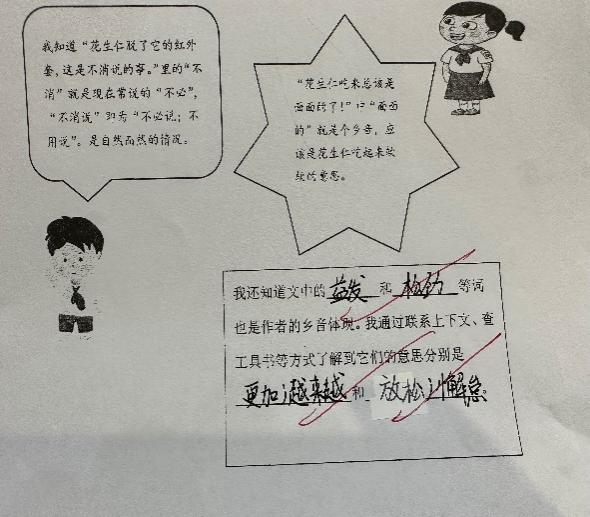 我知道“花生仁脱了它的红外
套，这是不消说的事。”里的“不
消”就是现在常说的“不必”，
“不消说”即为“不必说；不
用说”。是自然而然的情况。
“花生仁吃来总该是
面面的了！”中“面面
的”就是个乡音，应
该是花生仁吃起来软
软的意思。
我还知道文中的 益发 和 松劲 等词
也是作者的乡音体现。我通过联系上下文、查
工具书等方式了解到它们的意思分别是
更加；越来越 和 放松；懈怠